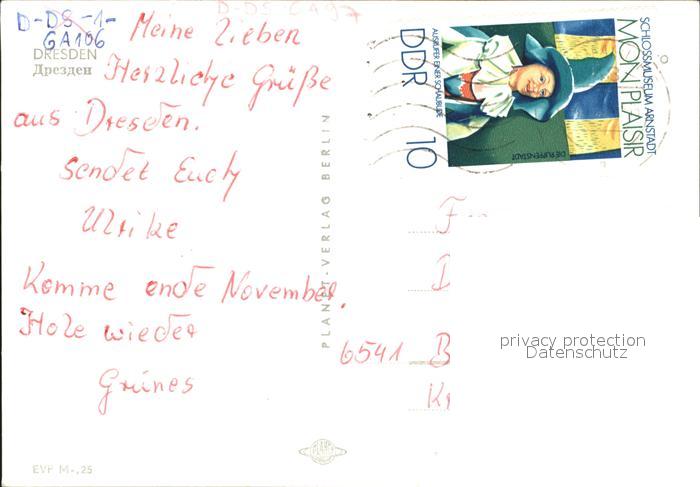 D-DS-1-
GA106
D-DS GA97
DRESDEN
Дрезден
Meine Lieben
Herzliche Grüße
aus Dresden.
sendet Euch
Ulrike
Komme ende November.
Hole wieder
Grünes
EVP M -,25
PLANET-VERLAG BERLIN
PLANET
SCHLOSSMUSEUM ARNSTADT
MON PLAISIR
DIE PUPPENSTADT
AUSRUFER EINER SCHAUBUDE
DDR 10
F
I
6541 B
Kr
privacy protection
Datenschutz